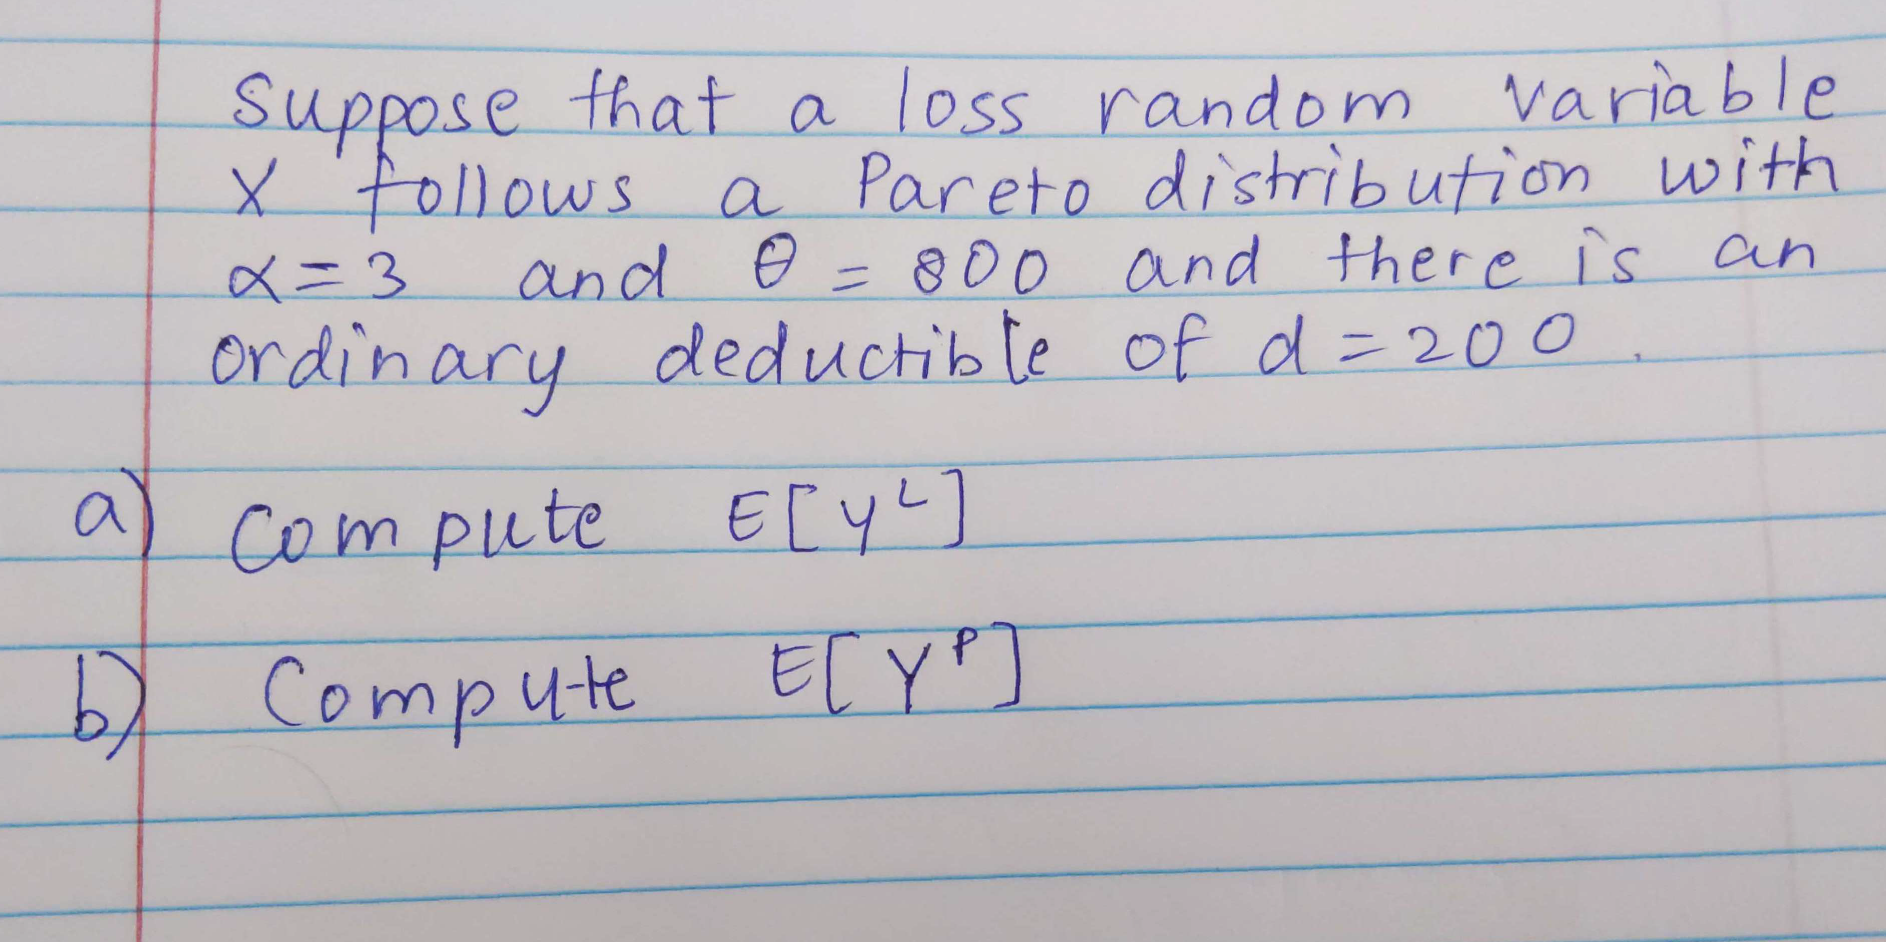 suppose that a loss random variable
X follows a Pareto distribution with
α = 3 and θ = 800 and there is an
ordinary deductible of d = 200.
a) compute E[Y^L]
b) Compute E[Y^P]